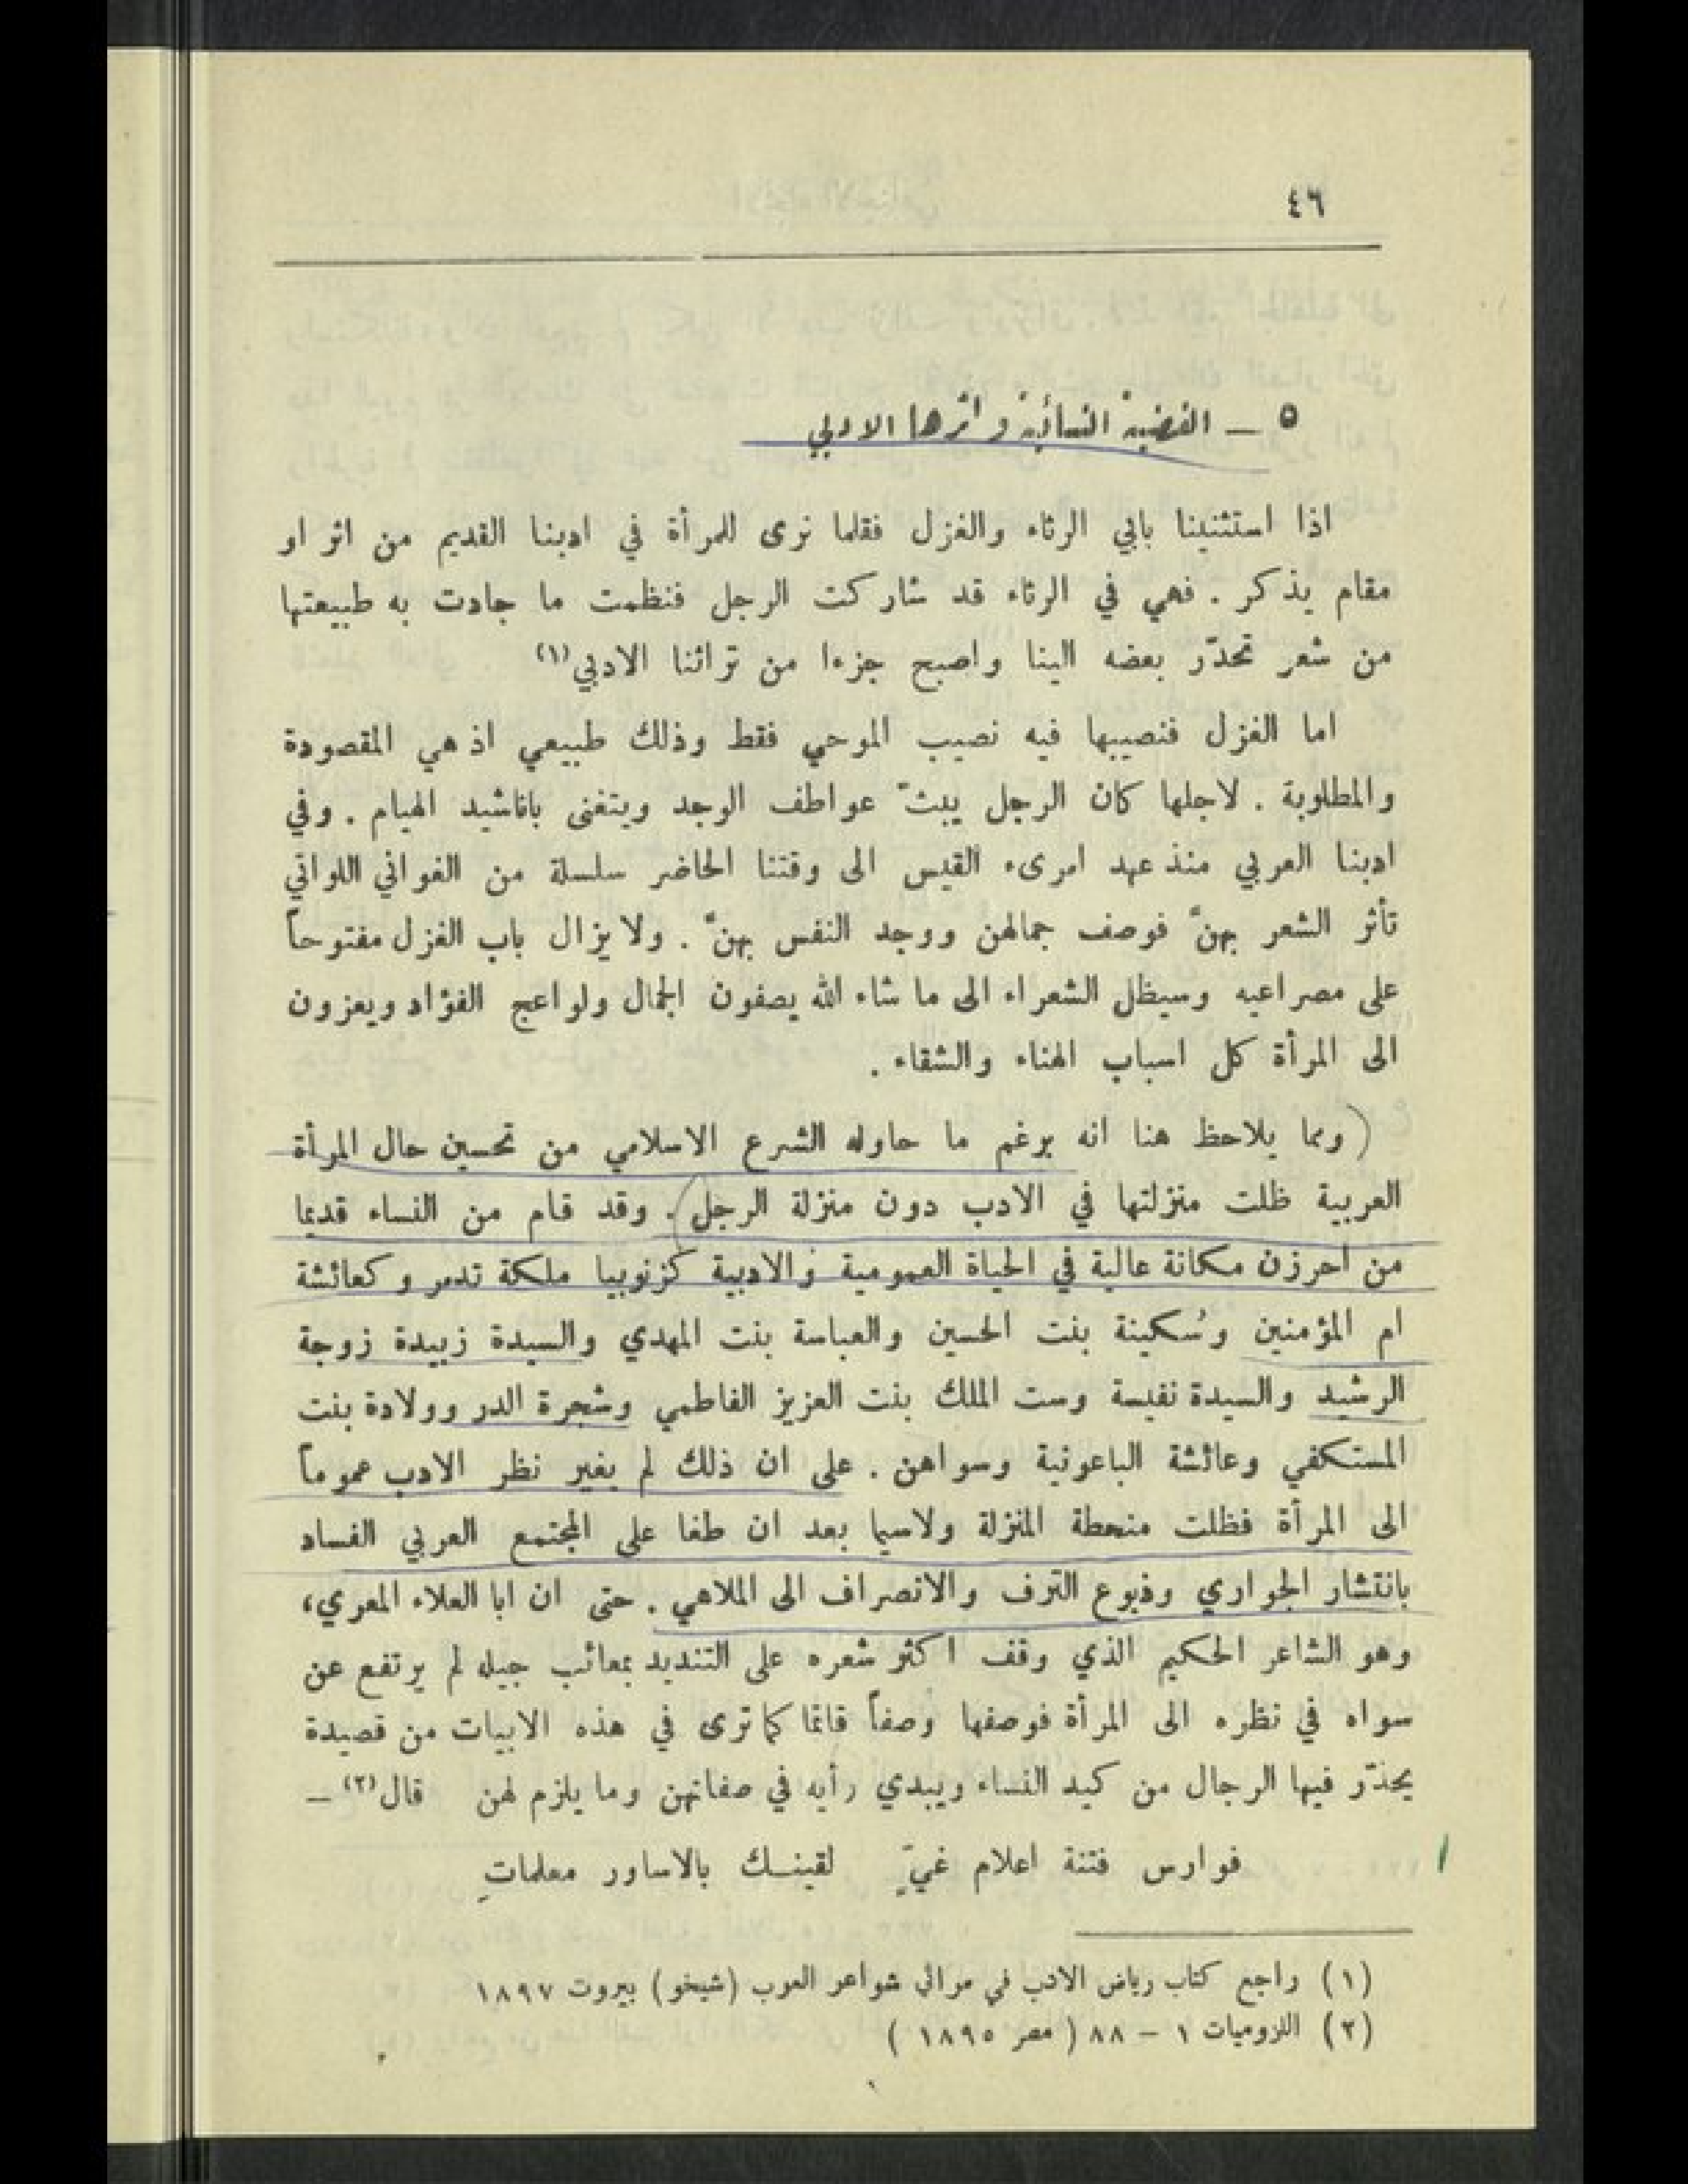 ٤٦
٥ – القضية النسائية واثرها الادبي
اذا استثنينا بابي الرثاء والغزل فقلما نرى للمرأة في ادبنا القديم من اثر او
مقام يذكر . فهي في الرثاء قد شاركت الرجل فنظمت ما جادت به طبيعتها
من شعر تحدّر بعضه الينا واصبح جزءا من تراثنا الادبي(١)
اما الغزل فنصيبها فيه نصيب الموحي فقط وذلك طبيعي اذ هي المقصودة
والمطلوبة . لاجلها كان الرجل يبثّ عواطف الوجد ويتغنى باناشيد الهيام . وفي
ادبنا العربي منذ عهد امرىء القيس الى وقتنا الحاضر سلسلة من الغواني اللواتي
تأثر الشعر بهنّ فوصف جمالهن ووجد النفس بهنّ . ولا يزال باب الغزل مفتوحاً
على مصراعيه وسيظل الشعراء الى ما شاء الله يصفون الجمال ولواعج الفؤاد ويعزون
الى المرأة كل اسباب الهناء والشقاء .
(ومما يلاحظ هنا انه برغم ما حاوله الشرع الاسلامي من تحسين حال المرأة
العربية ظلت منزلتها في الادب دون منزلة الرجل) . وقد قام من النساء قديما
من احرزن مكانة عالية في الحياة العمومية والادبية كزنوبيا ملكة تدمر وكعائشة
ام المؤمنين وسُكينة بنت الحسين والعباسة بنت المهدي والسيدة زبيدة زوجة
الرشيد والسيدة نفيسة وست الملك بنت العزيز الفاطمي وشجرة الدر وولادة بنت
المستكفي وعائشة الباعونية وسواهن . على ان ذلك لم يغير نظر الادب عموماً
الى المرأة فظلت منحطة المنزلة ولاسيما بعد ان طغا على المجتمع العربي الفساد
بانتشار الجواري وذيوع الترف والانصراف الى الملاهي . حتى ان ابا العلاء المعري،
وهو الشاعر الحكيم الذي وقف اكثر شعره على التنديد بمعائب جيله لم يرتفع عن
سواه في نظره الى المرأة فوصفها وصفاً قاتما كما ترى في هذه الابيات من قصيدة
يحذّر فيها الرجال من كيد النساء ويبدي رأيه في صفاتهن وما يلزم لهن قال(٢) –
فوارس فتنة اعلام غيٍّ لقينك بالاساور معلماتِ
(١) راجع كتاب رياض الادب في مراثي شواعر العرب (شيخو) بيروت ١٨٩٧
(٢) اللزوميات ١ – ٨٨ ( مصر ١٨٩٥ )